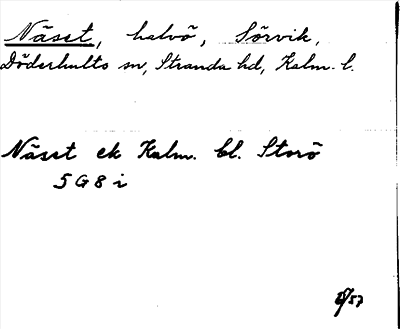 Näset, halvö, Sörvik,
Döderhults sn, Stranda hd, Kalm. l.
Näset ek Kalm. bl. Storö
5 G 8 i